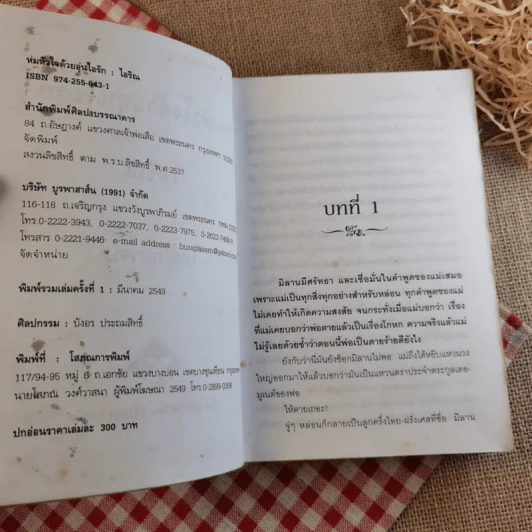 ห่มหัวใจด้วยอุ่นไอรัก : ไอริณ
ISBN 974-255-643-1
สำนักพิมพ์ศิลปบรรณาคาร
84 ถ.อัษฎางค์ แขวงศาลเจ้าพ่อเสือ เขตพระนคร กรุงเทพฯ
จัดพิมพ์
สงวนลิขสิทธิ์ ตาม พ.ร.บ.ลิขสิทธิ์ พ.ศ.2537
บริษัท บูรพาสาส์น (1991) จำกัด
116-118 ถ.เจริญกรุง แขวงวังบูรพาภิรมย์ เขตพระนคร กทม.
โทร.0-2222-3943, 0-2222-7037, 0-2223-7975,
โทรสาร 0-2221-9446 e-mail address :
จัดจำหน่าย
พิมพ์รวมเล่มครั้งที่ 1 : มีนาคม 2549
ศิลปกรรม : บังอร ประถมสิทธิ์
พิมพ์ที่ : โสภณการพิมพ์
117/94-95 หมู่ 6 ถ.เอกชัย แขวงบางบอน เขตบางขุนเทียน
นายโสภณ วงศ์วาสนา ผู้พิมพ์โฆษณา 2549 โทร.0-2899-0308
ปกอ่อนราคาเล่มละ 300 บาท
บทที่ 1
มิลานมีศรัทธา และเชื่อมั่นในคำพูดของแม่เสมอ
เพราะแม่เป็นทุกสิ่งทุกอย่างสำหรับหล่อน ทุกคำพูดของแม่
ไม่เคยทำให้เกิดความสงสัย จนกระทั่งเมื่อแม่บอกว่า เรื่อง
ที่แม่เคยบอกว่าพ่อตายแล้วเป็นเรื่องโกหก ความจริงแล้วแม่
ไม่รู้เลยด้วยซ้ำว่าตอนนี้พ่อเป็นตายร้ายดียังไง
ยังกับว่านี่มันยังช็อกมิลานไม่พอ แม่ถึงได้หยิบแหวนวง
ใหญ่ออกมาให้แล้วบอกว่ามันเป็นแหวนตราประจำตระกูลเดอ-
มูเณต์ของพ่อ
ให้ตายเถอะ!
จู่ๆ หล่อนก็กลายเป็นลูกครึ่งไทย-ฝรั่งเศสที่ชื่อ มิลาน